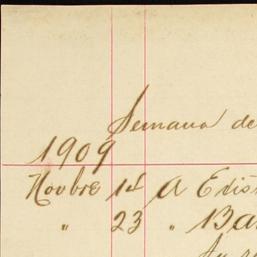 Semana de
1909
Novbre 1st A Edis
" 23 " Ba